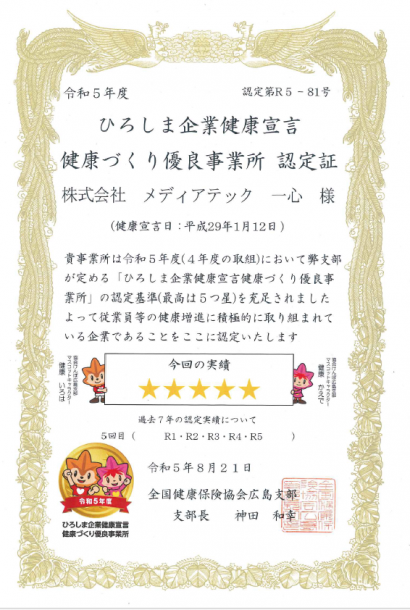 令和5年度
認定第R5-81号
ひろしま企業健康宣言
健康づくり優良事業所 認定証
株式会社 メディアテック 一心 様
(健康宣言日:平成29年1月12日)
貴事業所は令和5年度(4年度の取組)において弊支部
が定める「ひろしま企業健康宣言健康づくり優良事
業所」の認定基準(最高は5つ星)を充足されました
よって従業員等の健康増進に積極的に取り組まれて
いる企業であることをここに認定いたします
今回の実績
★★★★★
健康 いろは
健康 かえで
過去7年の認定実績について
5回目( R1・R2・R3・R4・R5 )
令和5年8月21日
全国健康保険協会広島支部
支部長 神田 和幸
令和5年度
ひろしま企業健康宣言
健康づくり優良事業所